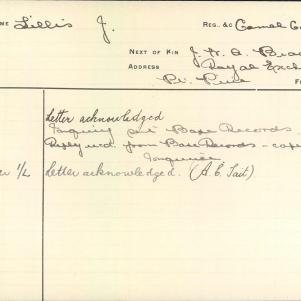 ME Lillis J. REG. &C Camel Co
NEXT OF KIN J.
ADDRESS Royal Exch
Pi. Pirie F
Letter acknowledged
Inquiry Base Records
Reply recd. from Base Records -
Inquiries
1/L Letter acknowledged. (A. E. Tait)